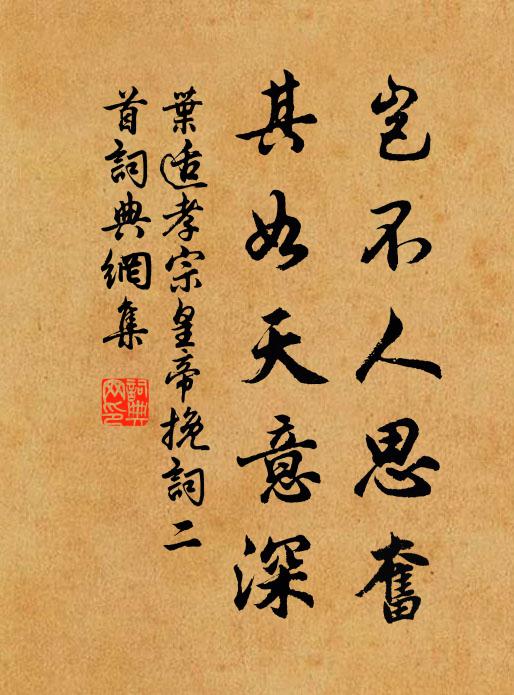 豈不人思奮
其如天意深
葉適孝宗皇帝挽詞二
首詞典網集
詞典
网印